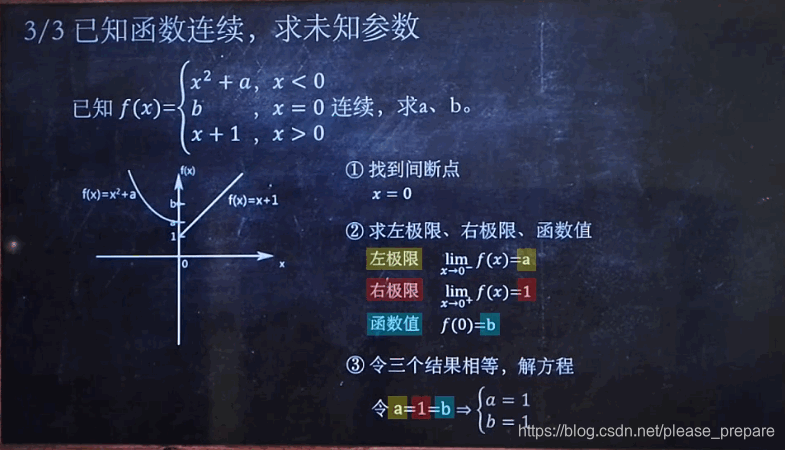 3/3 已知函数连续，求未知参数
x² + a, x < 0
已知 f(x)= b , x = 0 连续，求a、b。
x + 1 , x > 0
f(x)
f(x)=x²+a
b
f(x)=x+1
a
1
0
x
① 找到间断点
x = 0
② 求左极限、右极限、函数值
左极限 lim f(x)=a
x→0⁻
右极限 lim f(x)=1
x→0⁺
函数值 f(0)=b
③ 令三个结果相等，解方程
令 a=1=b ⇒ { a = 1
b = 1
https://blog.csdn.net/please_prepare